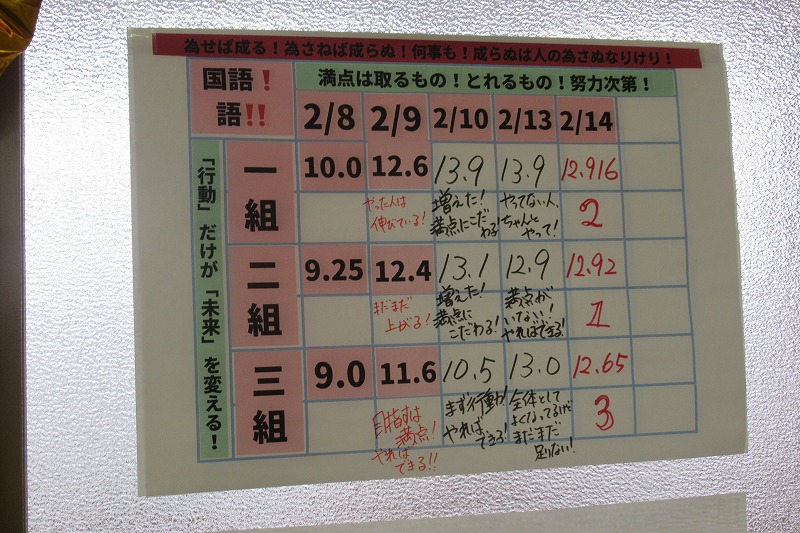 為せば成る！為さねば成らぬ！何事も！成らぬは人の為さぬなりけり！
国語！
語!!
満点は取るもの！とれるもの！努力次第！
2/8 2/9 2/10 2/13 2/14
「行動」だけが「未来」を変える！
一組
10.0 12.6 13.9 13.9 12.916
やった人は
伸びている！
増えた！
満点にこだ
わる！
やってない人、
ちゃんと
やって！
2
二組
9.25 12.4 13.1 12.9 12.92
まだまだ
上がる！
増えた！
満点に
こだわる！
満点が
いない！
やればできる！
1
三組
9.0 11.6 10.5 13.0 12.65
目指すは
満点！
やれば
できる!!
まず行動！
やれば
できる！
全体として
よくなってるけど
まだまだ
足りない！
3